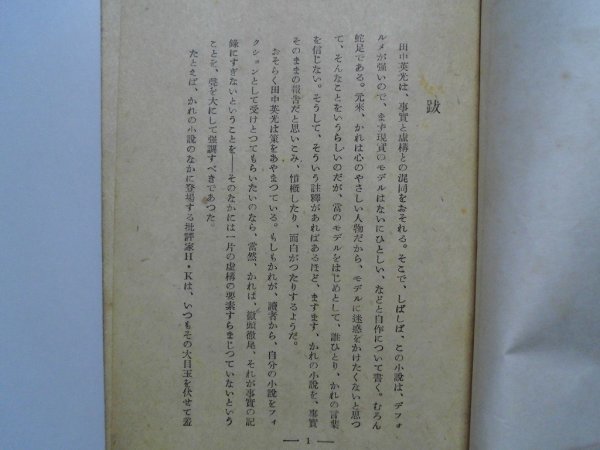 跋
田中英光は、事實と虛構との混同をおそれる。そこで、しばしば、この小説は、デフォ
ルメが强いので、まず現實のモデルはないにひとしい、などと自作について書く。むろん
蛇足である。元來、かれは心のやさしい人物だから、モデルに迷惑をかけたくないと思つ
て、そんなことをいうらしいのだが、當のモデルをはじめとして、誰ひとり、かれの言葉
を信じない。そうして、そういう註釋があればあるほど、ますます、かれの小説を、事實
そのままの報告だと思いこみ、憤慨したり、面白がつたりするようだ。
おそらく田中英光は策をあやまつている。もしもかれが、讀者から、自分の小説をフィ
クションとして受けとつてもらいたいのなら、當然、かれは、徹頭徹尾、それが事實の記
錄にすぎないということを——そのなかには一片の虛構の要素すらまじつていないという
ことを、聲を大にして强調すべきであつた。
たとえば、かれの小説のなかに登場する批評家H・Kは、いつもその大目玉を伏せて羞
— 1 —